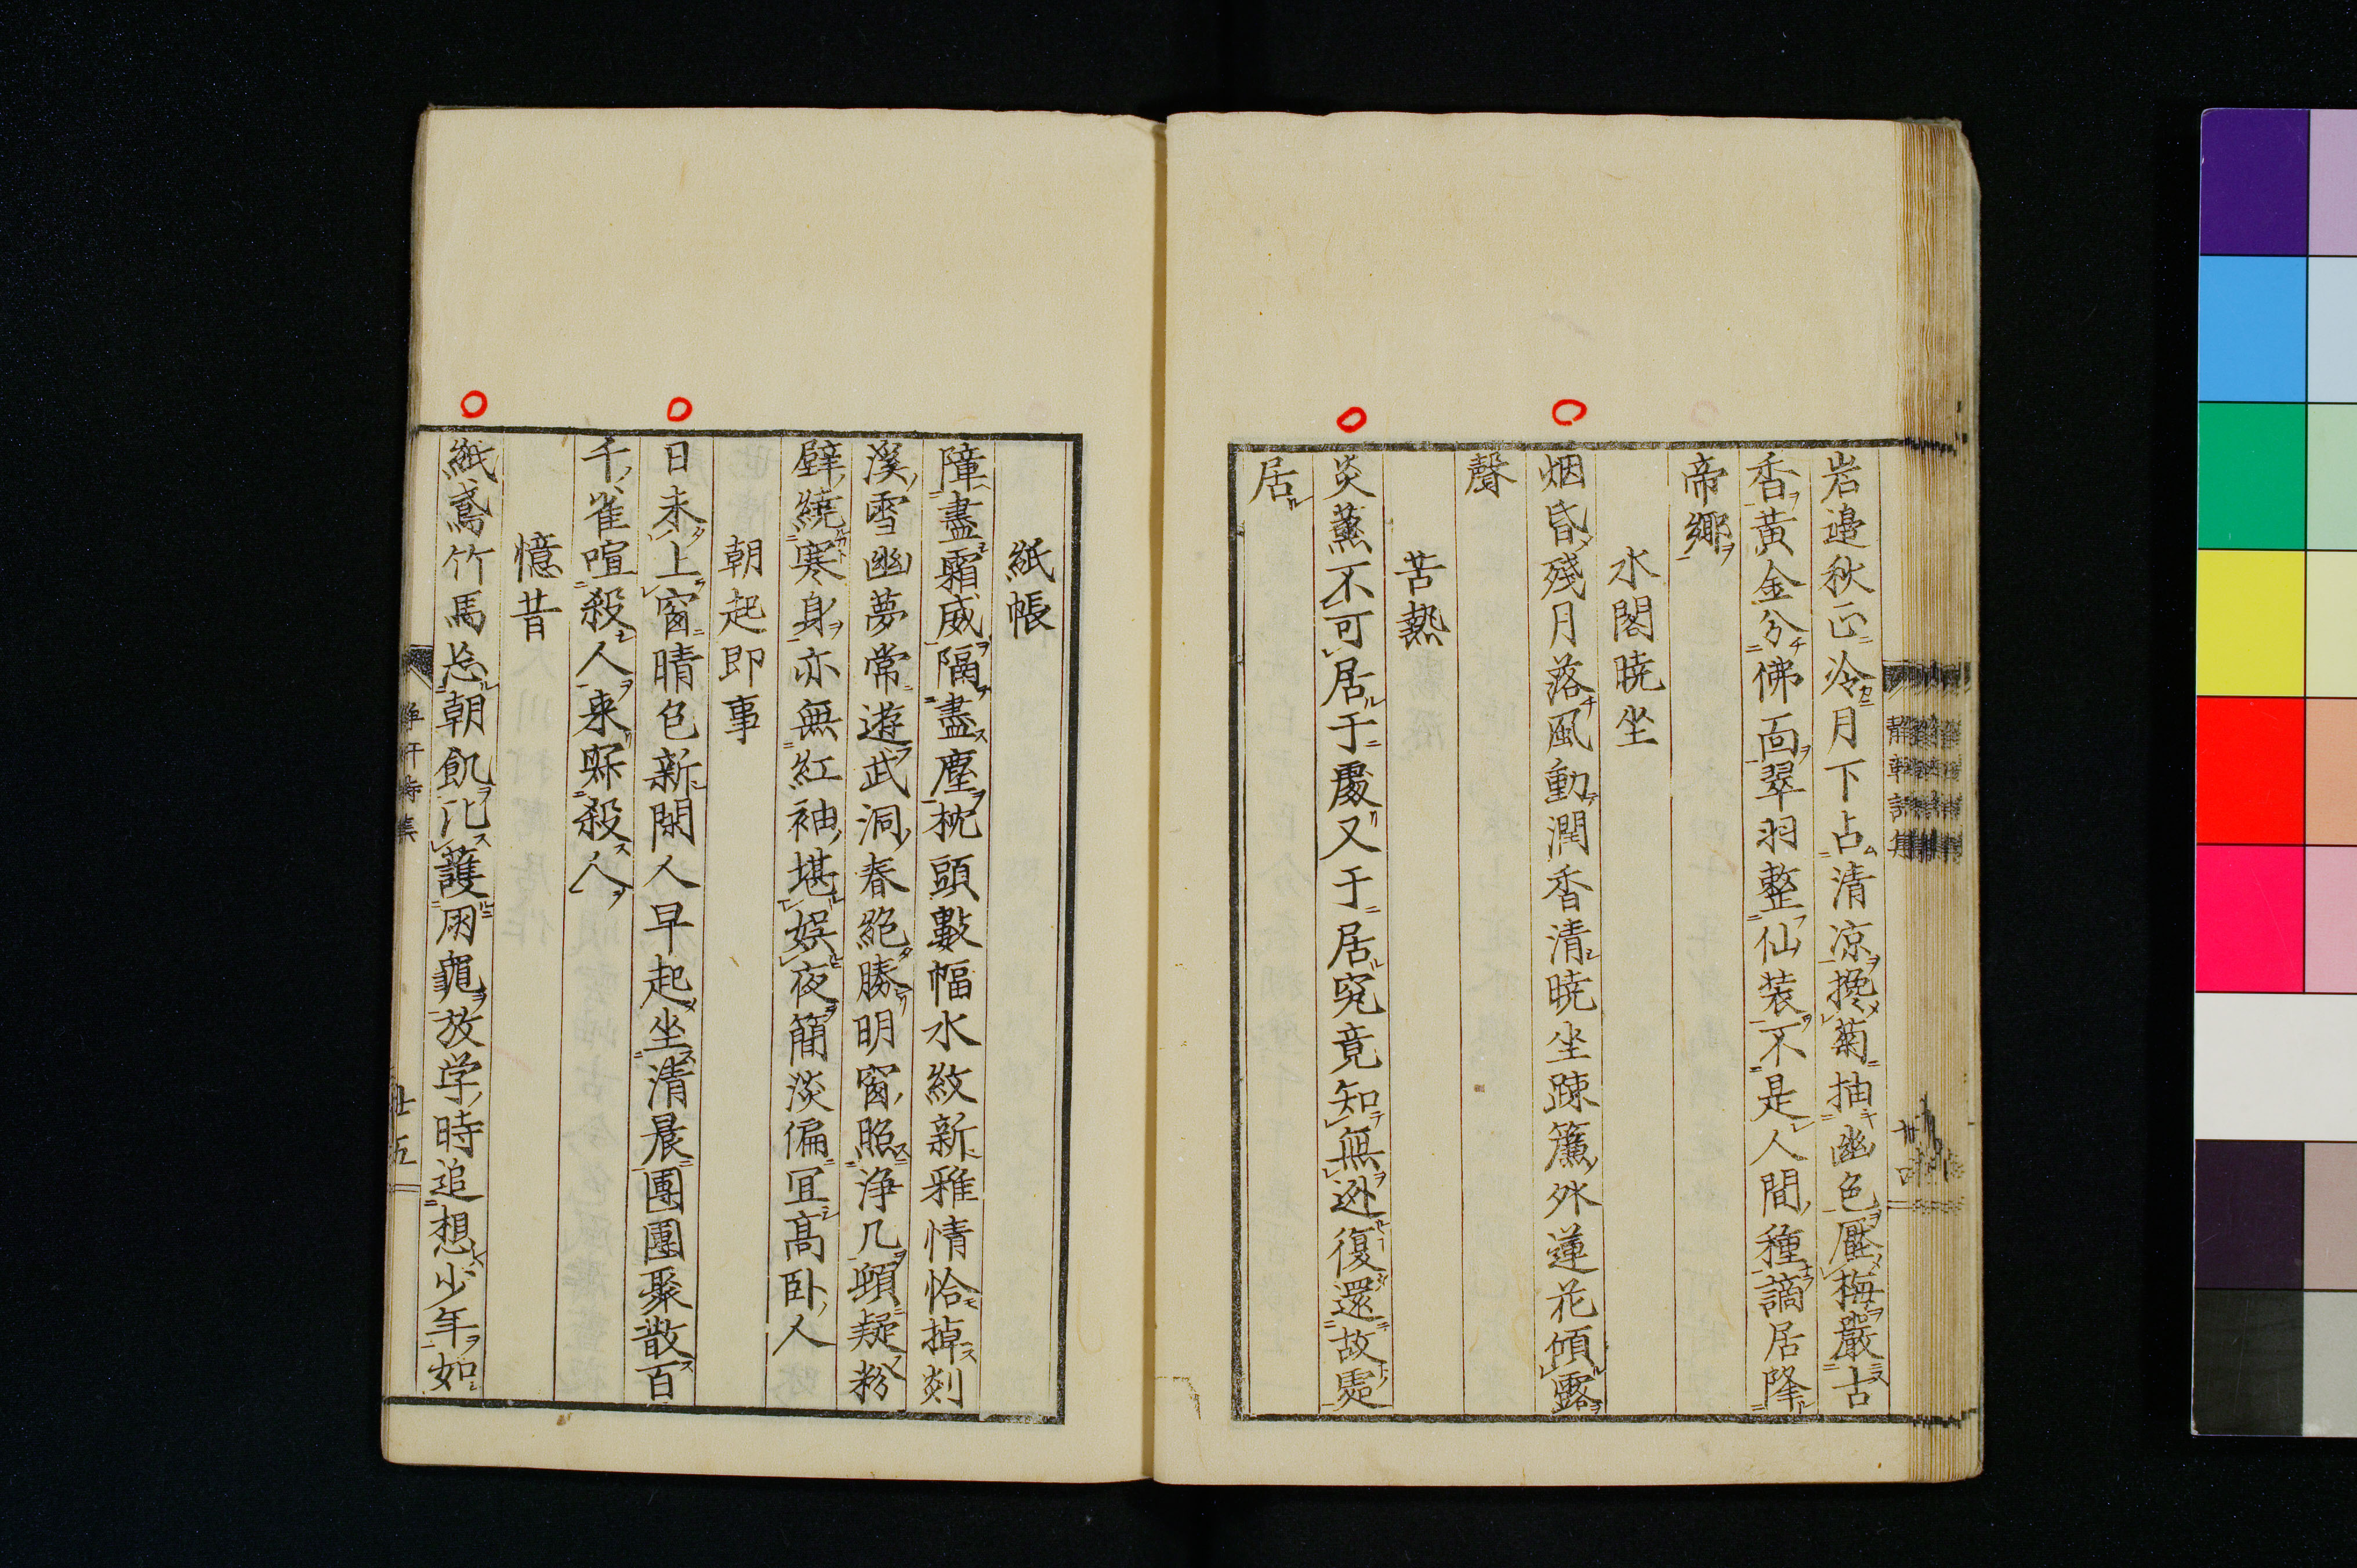 岩邉秋正冷月下占清凉攙菊抽幽色壓梅嚴古
香黄金分佛面翠羽整仙装不是人間種謫居隆
帝郷
水閣暁坐
烟昏殘月落風動潤香清暁坐踈簾外蓮花傾露
聲
苦熱
炎蒸不可居于處又于居究竟知無逊復還故處
居
紙帳
障盡霜威隔盡塵枕頭數幅水紋新雅情恰掉剡
溪雪幽夢常遊武洞春絶勝明窗照浄几頓疑粉
壁繞寒身亦無紅袖堪娯夜簡淡偏冝高臥人
朝起即事
日未上窗晴色新閑人早起坐清晨團團聚散百
千雀喧殺人来寐殺人
憶昔
紙鳶竹馬忘朝飢沘護用龜放学時追想少年如
静軒詩集
廿五